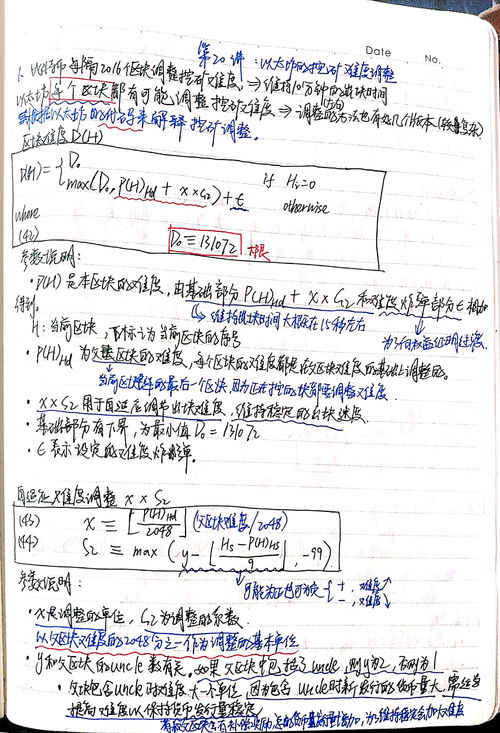 Date No.
第20讲：以太坊的挖矿难度调整
1. 比特币每隔2016个区块调整挖矿难度，⇒ 维持10分钟的出块时间
以太坊每个区块都有可能调整挖矿难度 ⇒ 调整的方法也有好几个版本
根据以太坊的代码来解释挖矿调整。
区块难度D(H)
D(H) ≡ { D₀ if Hᵢ=0
max(D₀, P(H)Hd + x × ς₂) + ε otherwise
where
(42) D₀ ≡ 131072 下限
参数说明：
· D(H)是本区块的难度，由基础部分P(H)Hd + x × ς₂和难度炸弹部分ε相加
得到。 ↳ 维持出块时间大概在15秒左右 为了向权益证明过渡
H：当前区块，下标i为当前区块的序号
· P(H)Hd为父区块的难度，每个区块的难度都是在父区块难度的基础上调整的。
当前区块链的最后一个区块，因为正在挖的块即要调整难度
· x × ς₂用于自适应调节出块难度，维持稳定的出块速度。
· 基础部分有下界，为最小值D₀ = 131072
· ε表示设定的难度炸弹。
自适应难度调整 x × ς₂
(43) x ≡ ⌊P(H)Hd / 2048⌋ (父区块难度/2048)
(44) ς₂ ≡ max ( y − ⌊(Hs − P(H)Hs) / 9⌋, −99 )
参数说明： ↳ 可能为正也可为负 { +，难度↑
−，难度↓
· x是调整的单位，ς₂为调整的系数。
以父区块难度的2048分之一作为调整的基本单位
· y和父区块的uncle数有关。如果父区块中包括了uncle，则y为2，否则为1
· 父块包含uncle时难度大一个单位，因为包含uncle时新发行的货币量大，需适当
提高难度以保持货币发行量稳定